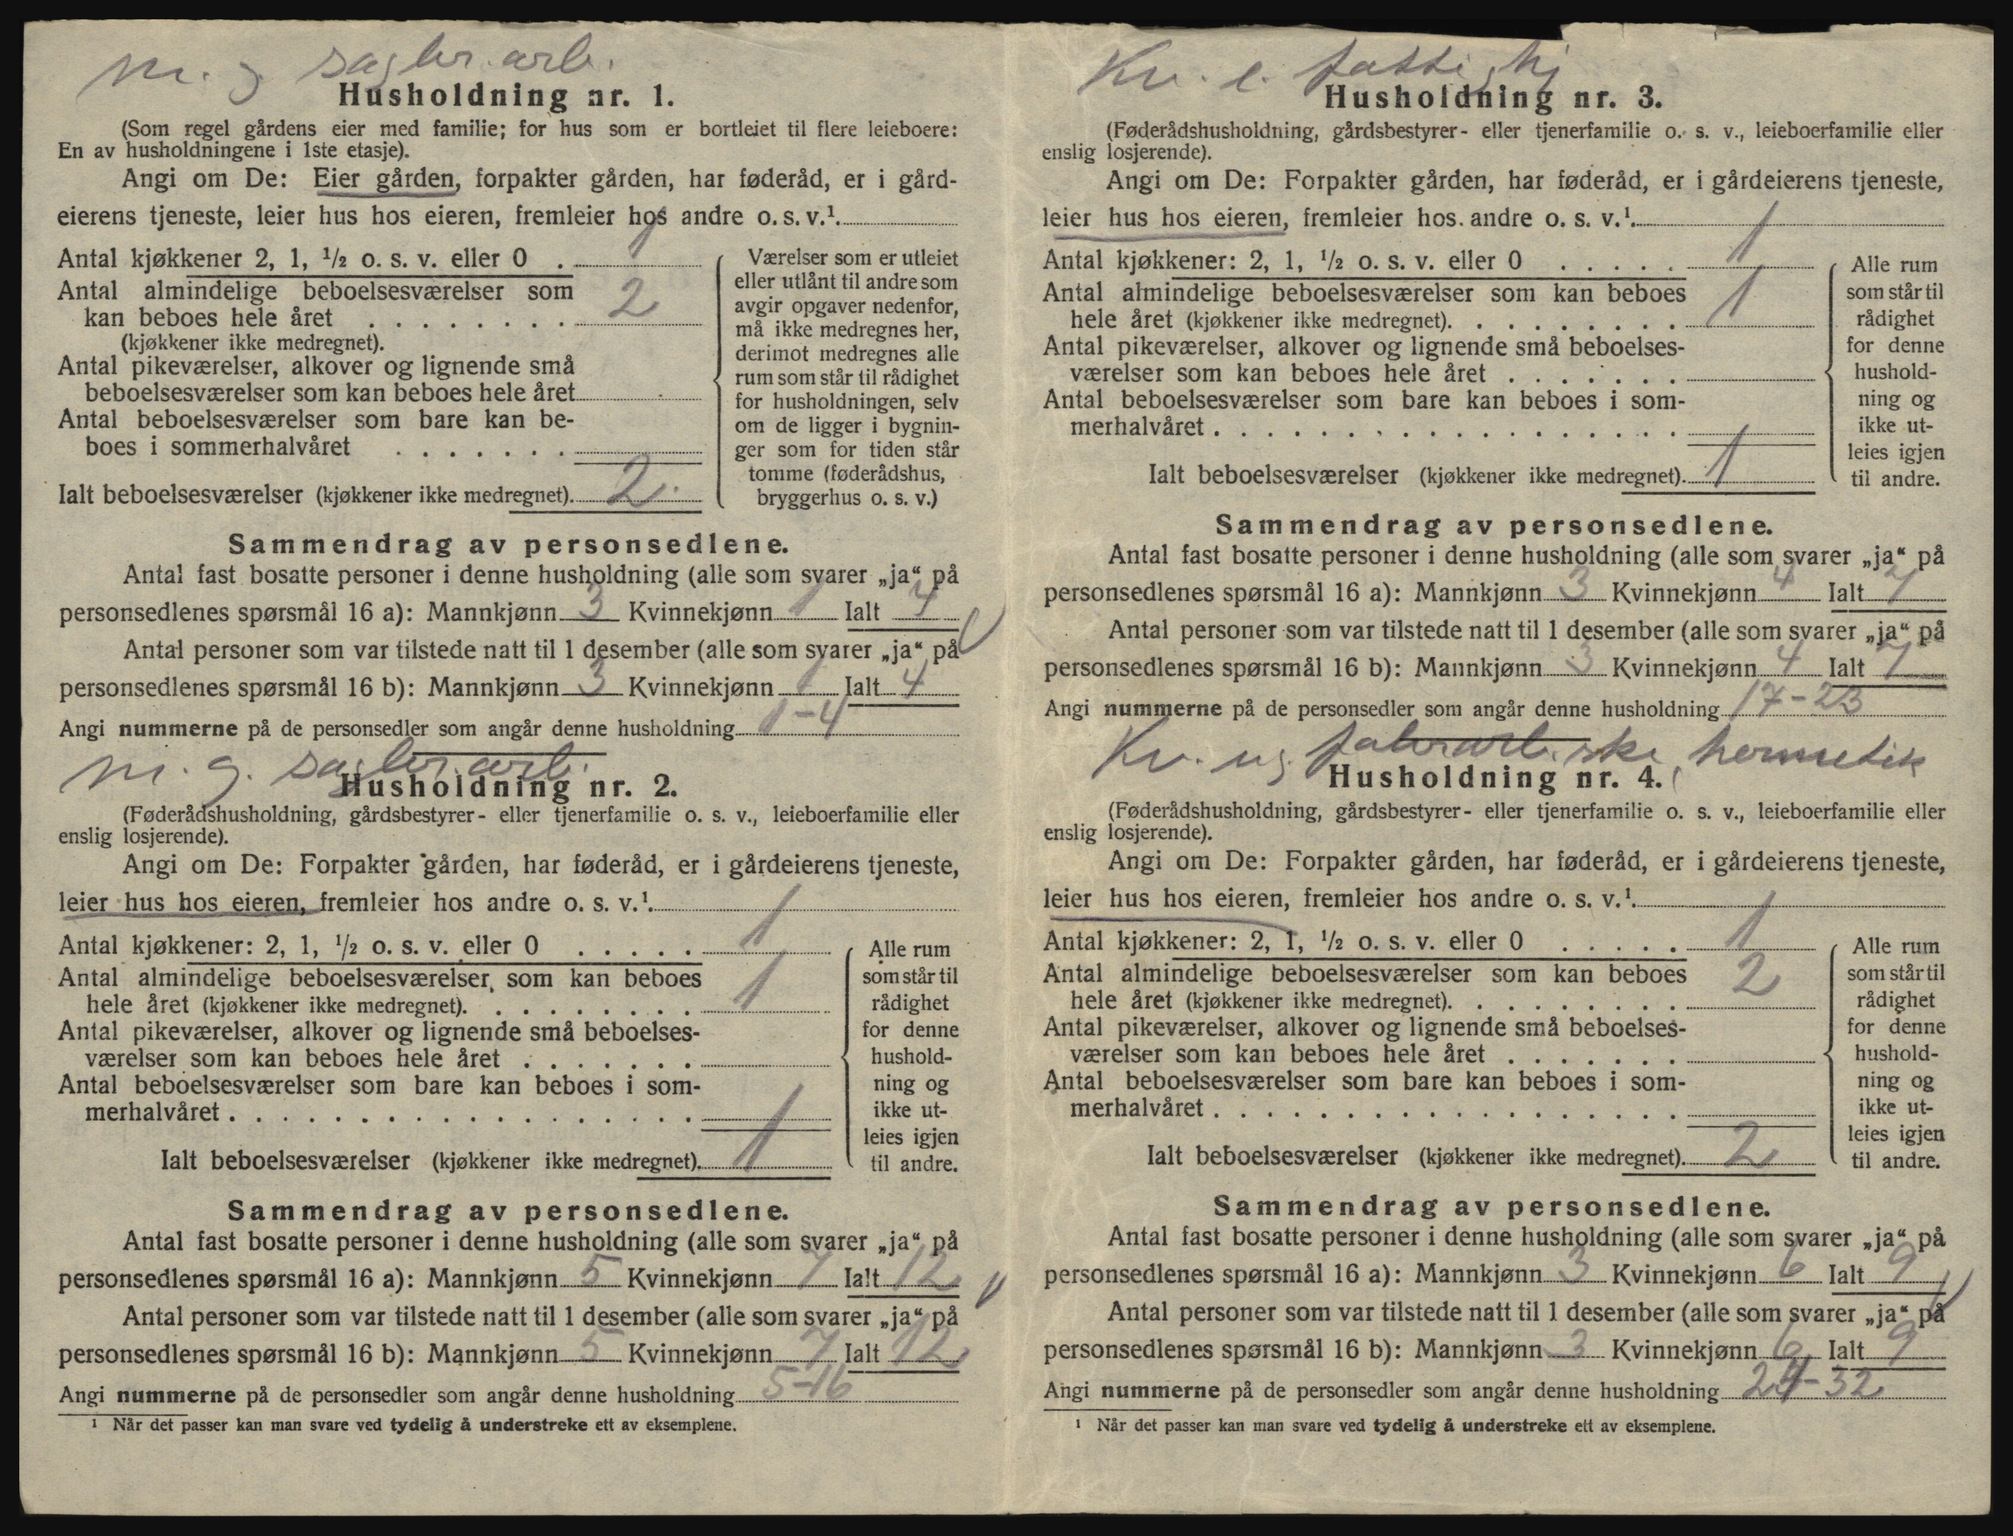 m. g. sagbr. arb.
Husholdning nr. 1.
(Som regel gårdens eier med familie; for hus som er bortleiet til flere leieboere:
En av husholdningene i 1ste etasje).
Angi om De: Eier gården, forpakter gården, har føderåd, er i gård-
eierens tjeneste, leier hus hos eieren, fremleier hos andre o. s. v.¹.
Antal kjøkkener 2, 1, ½ o. s. v. eller 0 . 1
Antal almindelige beboelsesværelser som
kan beboes hele året . . . . . . . . 2
(kjøkkener ikke medregnet).
Antal pikeværelser, alkover og lignende små
beboelsesværelser som kan beboes hele året
Antal beboelsesværelser som bare kan be-
boes i sommerhalvåret . . . . . . .
Ialt beboelsesværelser (kjøkkener ikke medregnet). 2.
Værelser som er utleiet
eller utlånt til andre som
avgir opgaver nedenfor,
må ikke medregnes her,
derimot medregnes alle
rum som står til rådighet
for husholdningen, selv
om de ligger i bygnin-
ger som for tiden står
tomme (føderådshus,
bryggerhus o. s. v.)
Sammendrag av personsedlene.
Antal fast bosatte personer i denne husholdning (alle som svarer „ja“ på
personsedlenes spørsmål 16 a): Mannkjønn 3 Kvinnekjønn 1 Ialt 4
Antal personer som var tilstede natt til 1 desember (alle som svarer „ja“ på
personsedlenes spørsmål 16 b): Mannkjønn 3 Kvinnekjønn 1 Ialt 4
Angi nummerne på de personsedler som angår denne husholdning 1-4
m. g. sagbr. arb.
Husholdning nr. 2.
(Føderådshusholdning, gårdsbestyrer- eller tjenerfamilie o. s. v., leieboerfamilie eller
enslig losjerende).
Angi om De: Forpakter gården, har føderåd, er i gårdeierens tjeneste,
leier hus hos eieren, fremleier hos andre o. s. v.¹.
Antal kjøkkener: 2, 1, ½ o. s. v. eller 0 . . . . . 1
Antal almindelige beboelsesværelser som kan beboes
hele året (kjøkkener ikke medregnet). . . . . . . . . 1
Antal pikeværelser, alkover og lignende små beboelses-
værelser som kan beboes hele året . . . . . . .
Antal beboelsesværelser som bare kan beboes i som-
merhalvåret . . . . . . . . . . . . . . . . . .
Ialt beboelsesværelser (kjøkkener ikke medregnet). 1
Alle rum
som står til
rådighet
for denne
hushold-
ning og
ikke ut-
leies igjen
til andre.
Sammendrag av personsedlene.
Antal fast bosatte personer i denne husholdning (alle som svarer „ja“ på
personsedlenes spørsmål 16 a): Mannkjønn 5 Kvinnekjønn 7 Ialt 12
Antal personer som var tilstede natt til 1 desember (alle som svarer „ja“ på
personsedlenes spørsmål 16 b): Mannkjønn 5 Kvinnekjønn 7 Ialt 12
Angi nummerne på de personsedler som angår denne husholdning 5-16
¹ Når det passer kan man svare ved tydelig å understreke ett av eksemplene.
Kv. e. fattighj
Husholdning nr. 3.
(Føderådshusholdning, gårdsbestyrer- eller tjenerfamilie o. s. v., leieboerfamilie eller
enslig losjerende).
Angi om De: Forpakter gården, har føderåd, er i gårdeierens tjeneste,
leier hus hos eieren, fremleier hos andre o. s. v.¹.
Antal kjøkkener: 2, 1, ½ o. s. v. eller 0 . . . . . 1
Antal almindelige beboelsesværelser som kan beboes
hele året (kjøkkener ikke medregnet). . . . . . . . . 1
Antal pikeværelser, alkover og lignende små beboelses-
værelser som kan beboes hele året . . . . . . .
Antal beboelsesværelser som bare kan beboes i som-
merhalvåret . . . . . . . . . . . . . . . . . .
Ialt beboelsesværelser (kjøkkener ikke medregnet). 1
Alle rum
som står til
rådighet
for denne
hushold-
ning og
ikke ut-
leies igjen
til andre.
Sammendrag av personsedlene.
Antal fast bosatte personer i denne husholdning (alle som svarer „ja“ på
personsedlenes spørsmål 16 a): Mannkjønn 3 Kvinnekjønn 4 Ialt 7
Antal personer som var tilstede natt til 1 desember (alle som svarer „ja“ på
personsedlenes spørsmål 16 b): Mannkjønn 3 Kvinnekjønn 4 Ialt 7
Angi nummerne på de personsedler som angår denne husholdning 17-23
Kv. ug. fabrarb. hermetik
Husholdning nr. 4.
(Føderådshusholdning, gårdsbestyrer- eller tjenerfamilie o. s. v., leieboerfamilie eller
enslig losjerende).
Angi om De: Forpakter gården, har føderåd, er i gårdeierens tjeneste,
leier hus hos eieren, fremleier hos andre o. s. v.¹.
Antal kjøkkener: 2, 1, ½ o. s. v. eller 0 . . . . . 1
Antal almindelige beboelsesværelser som kan beboes
hele året (kjøkkener ikke medregnet). . . . . . . . . 2
Antal pikeværelser, alkover og lignende små beboelses-
værelser som kan beboes hele året . . . . . . .
Antal beboelsesværelser som bare kan beboes i som-
merhalvåret . . . . . . . . . . . . . . . . . .
Ialt beboelsesværelser (kjøkkener ikke medregnet). 2
Alle rum
som står til
rådighet
for denne
hushold-
ning og
ikke ut-
leies igjen
til andre.
Sammendrag av personsedlene.
Antal fast bosatte personer i denne husholdning (alle som svarer „ja“ på
personsedlenes spørsmål 16 a): Mannkjønn 3 Kvinnekjønn 6 Ialt 9
Antal personer som var tilstede natt til 1 desember (alle som svarer „ja“ på
personsedlenes spørsmål 16 b): Mannkjønn 3 Kvinnekjønn 6 Ialt 9
Angi nummerne på de personsedler som angår denne husholdning 24-32
¹ Når det passer kan man svare ved tydelig å understreke ett av eksemplene.